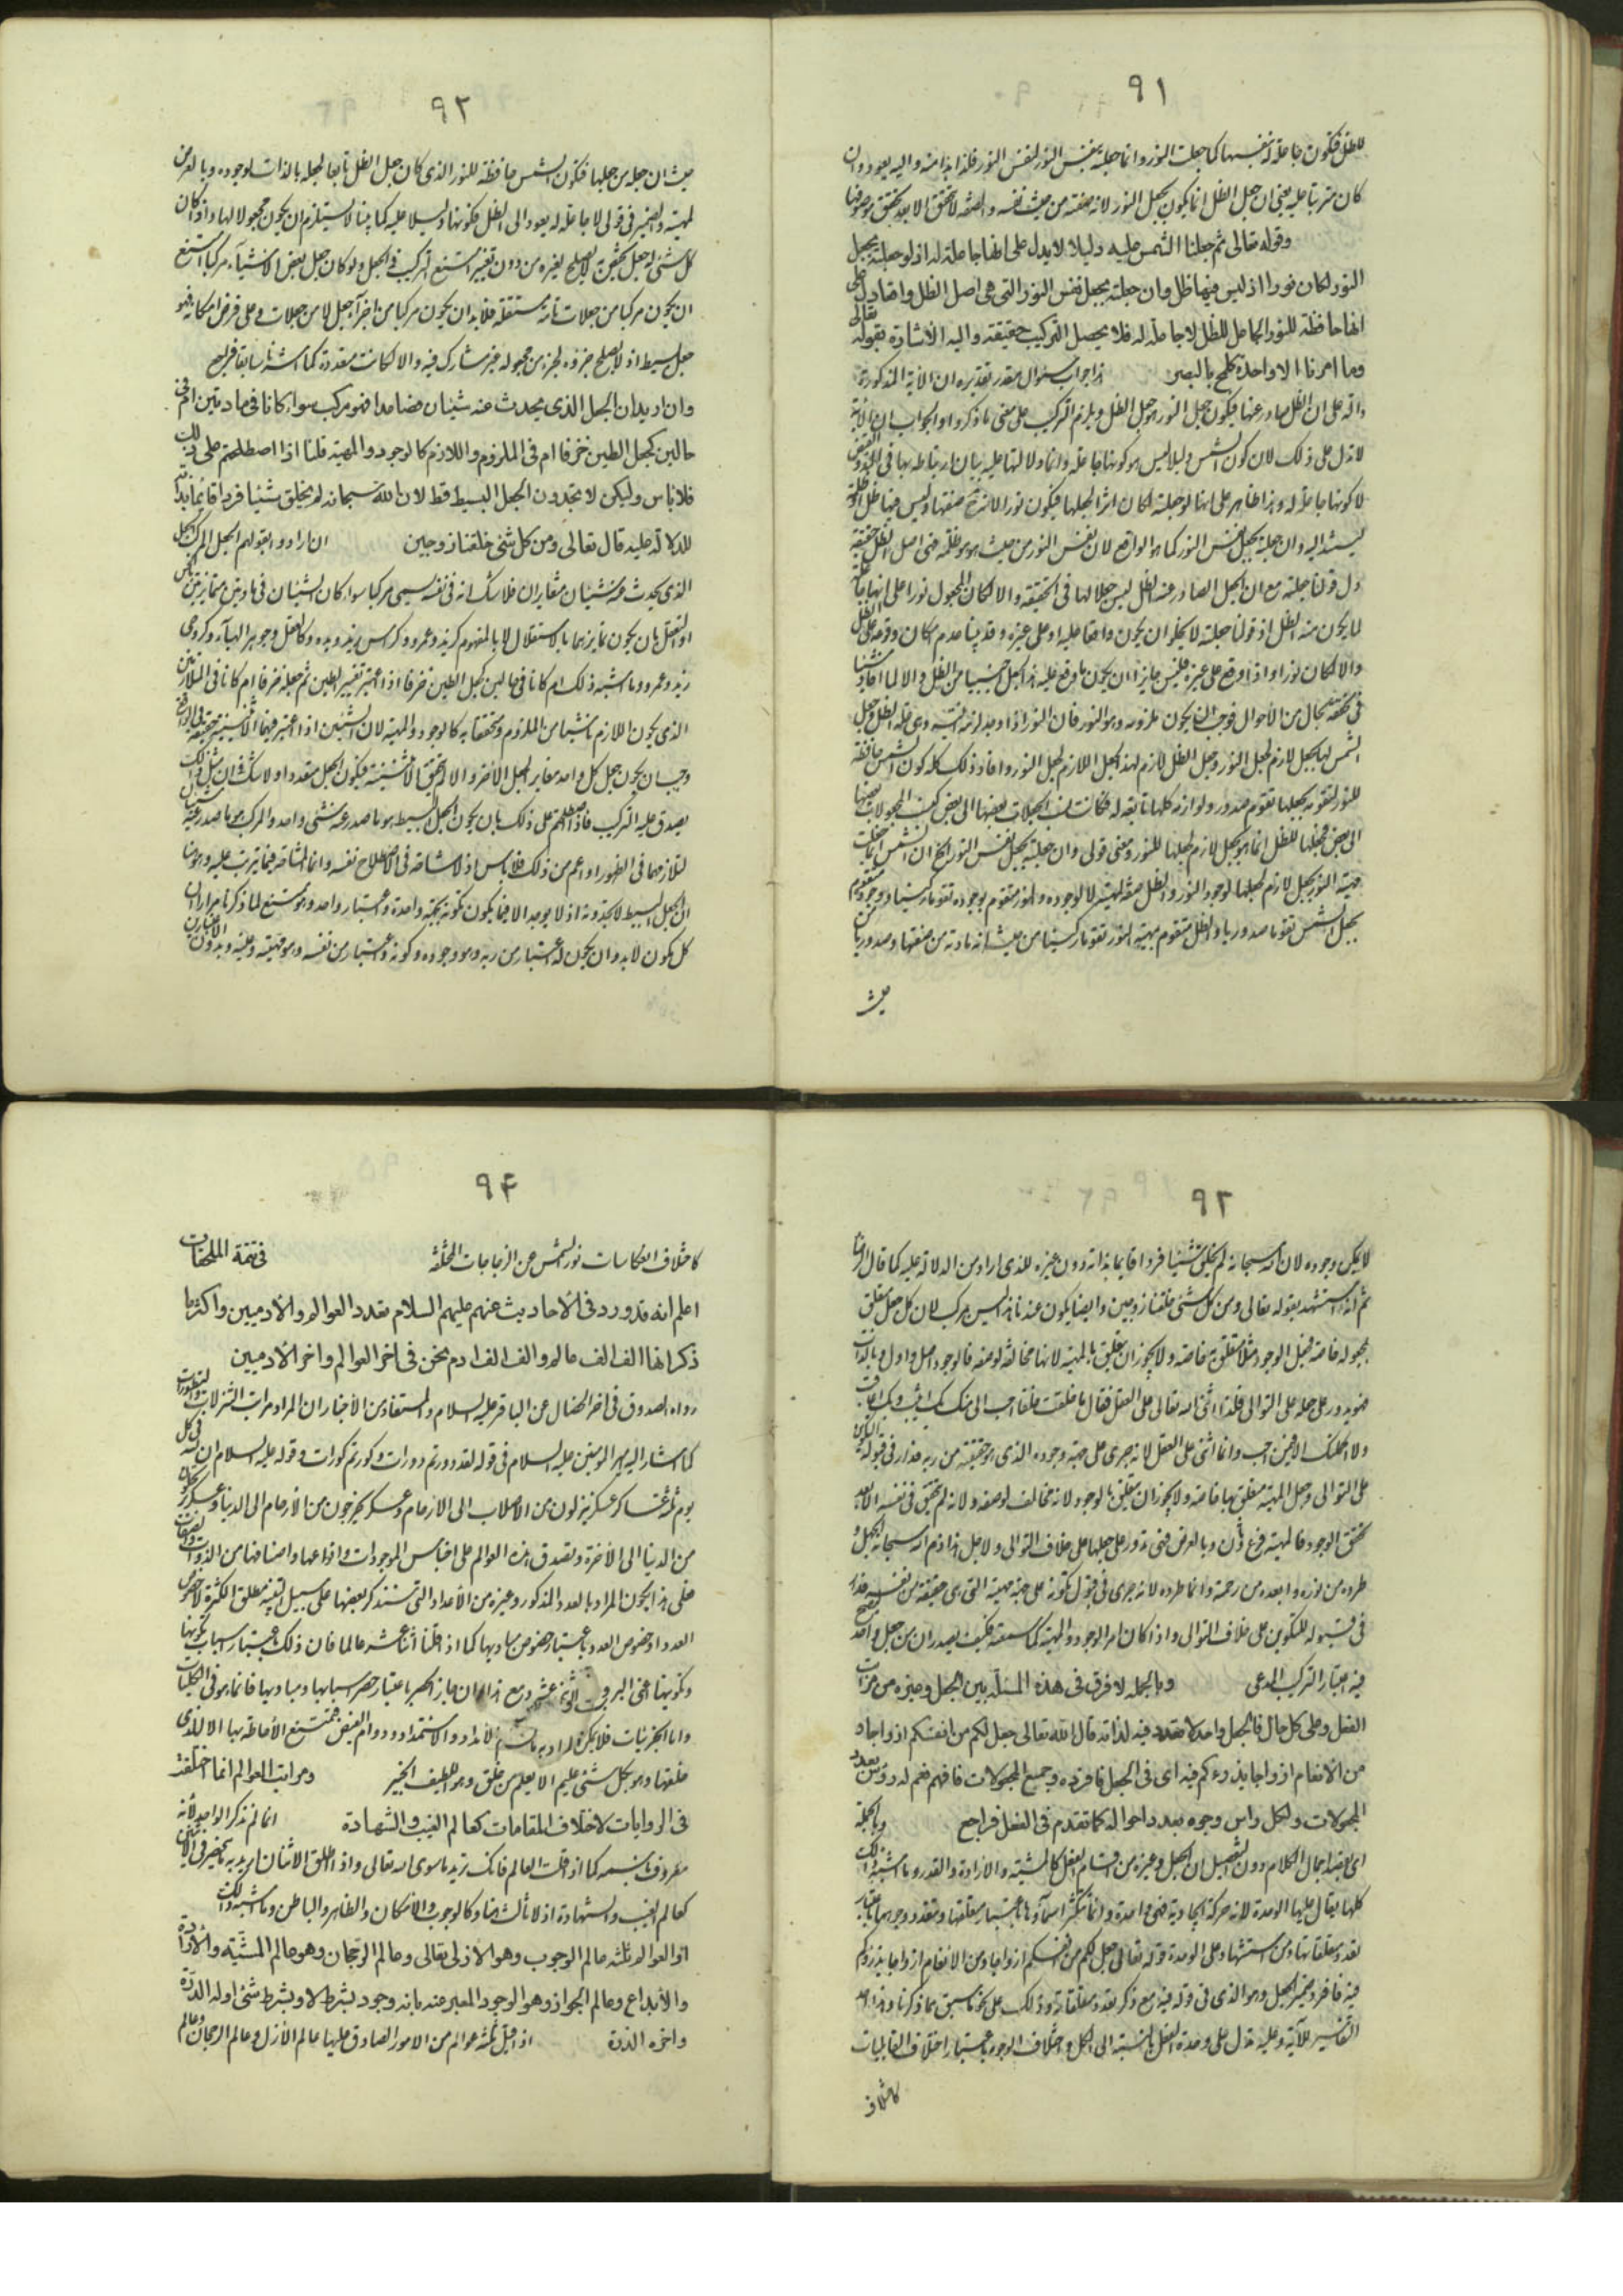 ٩١
للظل فتكون جاعلة له بنفسها كما جعلت النور وانما جعلته بنفس النور لنفس النور فلذا بدا منه واليه يعود وان
كان مترتبا عليه يعني ان جعل الظل انما يكون بجعل النور لانه صفته من حيث نفسه والصفة لا تتحقق الا بعد تحقق موصوفها
وقوله تعالى ثم جعلنا الشمس عليه دليلا لا يدل على انها جاعلة له اذ لو جعلته بجعل
النور لكان نورا اذ ليس فيها ظل وان جعلته بجعل نفس النور التي هي اصل الظل وانما دل على
انها حافظة للنور الحامل للظل لا جاعلة له فلا يحصل التركيب حقيقة واليه الاشارة بقوله تعالى
وما امرنا الا واحدة كلمح بالبصر هذا جواب سئوال مقدر تقديره ان الآية المذكورة
دالة على ان الظل صادر عنها فيكون جعل النور هو جعل الظل ويلزم التركيب على معنى ما ذكروا والجواب ان الآية
لا تدل على ذلك لان كون الشمس دليلا ليس هو كونها جاعلة وانما دلالتها عليه بيان ارتباطه بها في
لا كونها جاعلة له وهذا ظاهر على انها لو جعلته لكان اثرا لجعلها فيكون نورا لان الاثر صفتها وليس فيها ظل او ظلمة
ليستند اليه وان جعلته بجعل نفس النور كما هو الواقع لان نفس النور من حيث هو هو ظلمة فهي اصل الظل حقيقة
دل قولنا جعلته مع ان الجعل الصادر عنه الظل ليس جعلا لها في الحقيقة والا لكان المجعول نورا على انها جاعلة
لما يكون منه الظل اذ قولنا جعلته لا يخلو ان يكون واقعا عليه او على غيره وقد بينا عدم امكان وقوعه على الظل
والا لكان نورا واذا وقع على غيره فليس جايزا ان يكون ما وقع عليه هذا الجعل اجنبيا من الظل والا لما افاد شيئا
في تحققه بحال من الأحوال فوجب ان يكون ملزومه وهو النور فان النور اذا وجد لزمته انيته وهي علة الظل وجعل
الشمس لها بجعل لازم لجعل النور وجعل الظل لازم لهذا الجعل اللازم لجعل النور وافاد ذلك كله كون الشمس حافظة
للنور لتقومه بجعلها تقوم صدور ولوازمه كلها تابعة له فكانت نسب الجعلات بعضها الى بعض كنسب المجعولات بعضها
الى بعض فجعلها للظل انما هو بجعل لازم لجعلها للنور ومعنى قولي وان جعلته بجعل نفس النور الخ ان الشمس انما جعلت
مهية النور بجعل لازم لجعلها لوجود النور والظل صفة لمهيته لا لوجوده والنور متقوم بوجوده تقوما ركنيا ووجوده متقوم
بجعل الشمس تقوما صدوريا والظل متقوم بمهية النور تقوما ركنيا من حيث انه مادته من صفتها وصدوريا من
حيث
٩٢
حيث ان جعله من جعلها فتكون الشمس حافظة للنور الذي كان جعل الظل تابعا لجعله بالذات لوجوده وبالعرض
لمهيته والضمير في قولي لا جاعلة له يعود الى الظل فكونها دليلا عليه كما بينا لا يستلزم ان يكون مجعولا لها واذا كان
كل شئ له جعل يختص به لا يصلح لغيره من دون تغيير امتنع التركيب في الجعل ولو كان جعل بعض الاشياء مركبا امتنع
ان يكون مركبا من جعلات تامة مستقلة فلابد ان يكون مركبا من اجزاء جعل لا من جعلات وعلى فرض امكانه فهو
جعل بسيط اذ لا يصلح جزؤه لجزء من مجعوله غير مشارك فيه والا لكانت متعددة كما اشرنا سابقا فراجع
وان اريد ان الجعل الذي يحدث عنه شيئان فصاعدا فهو مركب سواء كانا في مادتين ام في
حالين كجعل الطين خزفا ام في الملزوم واللازم كالوجود والمهية قلنا اذا اصطلحتم على ذلك
فلا باس وليكن لا تجدون الجعل البسيط قط لان الله سبحانه لم يخلق شيئا فردا قائما بذاته
للدلالة عليه قال تعالى ومن كل شئ خلقنا زوجين ان ارادوا بقولهم الجعل المركب الجعل
الذي يحدث عنه شيئان متغايران فلا شك انه في نفسه يسمى مركبا سواء كان الشيئان في مادتين متمايزتين
او بالتعقل بان يكون تمايزهما بالاستقلال لا بالمفهوم كزيد وعمرو وكراس زيد ويده وكالعقل وجوهر الهباء وكروحي
زيد وعمرو وما اشبه ذلك ام كانا في حالين كجعل الطين خزفا اذا اعتبر تغيير الطين ثم جعله خزفا ام كانا في المتلازمين
الذي يكون اللازم ناشيا من الملزوم ومتحققا به كالوجود والمهية لان الشيئين اذا اعتبر فيهما الاثنينية
وجب ان يكون جعل كل واحد مغاير لجعل الآخر والا لم تتحقق الاثنينية فيكون الجعل متعددا ولا شك ان مثل ذلك
يصدق عليه التركيب فاذا اصطلحتم على ذلك بان يكون الجعل البسيط هو ما صدر عنه شئ واحد والمركب هو ما صدر عنه شيئان
لتلازمهما في الظهور او اعم من ذلك فلا باس اذ لا مشاحة في الاصطلاح نفسه وانما المشاحة فيما يترتب عليه وهو هنا
ان الجعل البسيط لا تجدونه اذ لا يوجد الا فيما يكون تكونه بجهة واحدة واعتبار واحد وهو ممتنع لما ذكرنا مرارا ان
كل مكون لابد وان يكون له اعتبار من ربه وهو وجوده وكونه واعتبار من نفسه وهو مهيته وعينه وبدون الاعتبارين
٩٣
لا يمكن وجوده لان الله سبحانه لم يخلق شيئا فردا قايما بذاته دون غيره للذي اراد من الدلالة عليه كما قال الرضا
ثم انه استشهد بقوله تعالى ومن كل شئ خلقنا زوجين وايضا يكون عندنا هذا ليس مركبا لان كل جعل متعلق
بمجعوله خاصة فجعل الوجود مثلا متعلق به خاصة ولا يجوز ان يتعلق بالمهية لانها مخالفة لوصفه فالوجود اصل واول وبالذات
فهو يدور على جعله على التوالي فلذا اثنى الله تعالى على العقل فقال ما خلقت خلقا احب الي منك بك اثيب وبك اعاقب
ولا اكملتك الا فيمن احب وانما اثنى على العقل لانه جرى على جهة وجوده الذي هو حقيقته من ربه فدار في قبوله للتكوين
على التوالي وجعل المهية متعلق بها خاصة ولا يجوز ان يتعلق بالوجود لانه مخالف لوصفه ولانه لم يتحقق في نفسه الا بعد
تحقق الوجود فالمهية فرع وثان وبالعرض فهي تدور على جعلها على خلاف التوالي ولاجل هذا ذم الله سبحانه الجهل و
طرده من نوره وابعده من رحمته وانما طرده لانه جرى في قبول تكونه على جهة مهيته التي هي حقيقته من نفسه فدار
في قبوله للتكوين على خلاف التوالي واذا كان امر الوجود والمهية كما سمعته فكيف يصدران من جعل واحد
فيه اعتبار التركيب المدعى وبالجملة لا فرق في هذه المسئلة بين الجعل وغيره من مراتب
الفعل وعلى كل حال فالجعل واحد لا تعدد فيه لذاته قال الله تعالى جعل لكم من انفسكم ازواجا و
من الانعام ازواجا يذرءكم فيه اي في الجعل فافرده وجميع المجعولات فافهم فهم له رؤس بعدد
المجعولات ولكل راس وجوه بعدد احواله كما تقدم في الفعل فراجع وبالجملة
اي بقصد اجمال الكلام دون التفصيل ان الجعل وغيره من اقسام الفعل كالمشية والارادة والقدر وما اشبه ذلك
كلها يقال عليها الوحدة لانه حركة ايجادية فهي واحدة وانما تكثر اسماؤها باعتبار متعلقها وتعدد وجوهها باعتبار
تعدد متعلقاتها ومن استشهادنا على الوحدة قوله تعالى جعل لكم من انفسكم ازواجا ومن الانعام ازواجا يذرؤكم
فيه فافرد ضمير الجعل وهو الذي في قوله فيه مع ذكر تعدد متعلقاته وذلك على نحو ما سبق مما ذكرنا وهذا احد
التفسير للآية وعليه تدل على وحدة الفعل بالنسبة الى الكل واختلاف الوجوه باعتبار اختلاف القابليات
كاختلاف
٩۴
كاختلاف انعكاسات نور الشمس عن الزجاجات المختلفة في تتمة الملحقات
اعلم انه قد ورد في الأحاديث عنهم عليهم السلام تعدد العوالم والآدميين واكثرها
ذكر انها الف الف عالم والف الف ادم نحن في اخر العوالم واخر الآدميين
رواه الصدوق في اخر الخصال عن الباقر عليه السلام والمستفاد من الأخبار ان المراد مراتب التنزلات والتطورات
كما اشار اليه امير المؤمنين عليه السلام في قوله لقد دورتم دورات وكورتم كورات وقوله عليه السلام ان لله في كل
يوم ثلثة عساكر عسكر ينزلون من الاصلاب الى الارحام وعسكر يخرجون من الأرحام الى الدنيا وعسكر يرتحلون
من الدنيا الى الآخرة وتصدق هذه العوالم على اجناس الموجودات وانواعها واصنافها من الذوات والصفات
فعلى هذا يكون المراد بالعدد المذكور وغيره من الأعداد التي سنذكر بعضها على سبيل التنبيه مطلق الكثرة لا خصوص
العدد او خصوص العدد باعتبار خصوص مباديها كما اذا قلنا اثنا عشر عالما فان ذلك باعتبار اسباب تكونها
وتكوينها اعني البروج الاثنى عشر ومع هذا ان جاز الحصر باعتبار حصر اسبابها ومباديها فانما هو في الكليات
واما الجزئيات فلا يمكن لامداد والاستمداد ودوام الفيض فتمتنع الاحاطة بها الا للذي
خلقها وهو بكل شئ عليم الا يعلم من خلق وهو اللطيف الخبير ومراتب العوالم انما اختلفت
في الروايات لاختلاف المقامات كعالم الغيب والشهادة انما لم نذكر الواحد لأنه
معروف بنفسه كما اذا قلت العالم فانك تريد ما سوى الله تعالى واذا اطلق الاثنان اريد به ما يحصر في الاثنين
كعالم الغيب والشهادة اذ لا ثالث لهما وكالوجوب والامكان والظاهر والباطن وما اشبه ذلك
او العوالم ثلثة عالم الوجوب وهو الازل تعالى وعالم الرجحان وهو عالم المشية والارادة
والأبداع وعالم الجواز وهو الوجود المعبر عنه بانه وجود بشرط لا وبشرط شئ اوله الدرة
واخره الذرة اذا قيل ثلثة عوالم من الامور الصادق عليها عالم الأزل وعالم الرجحان وعالم